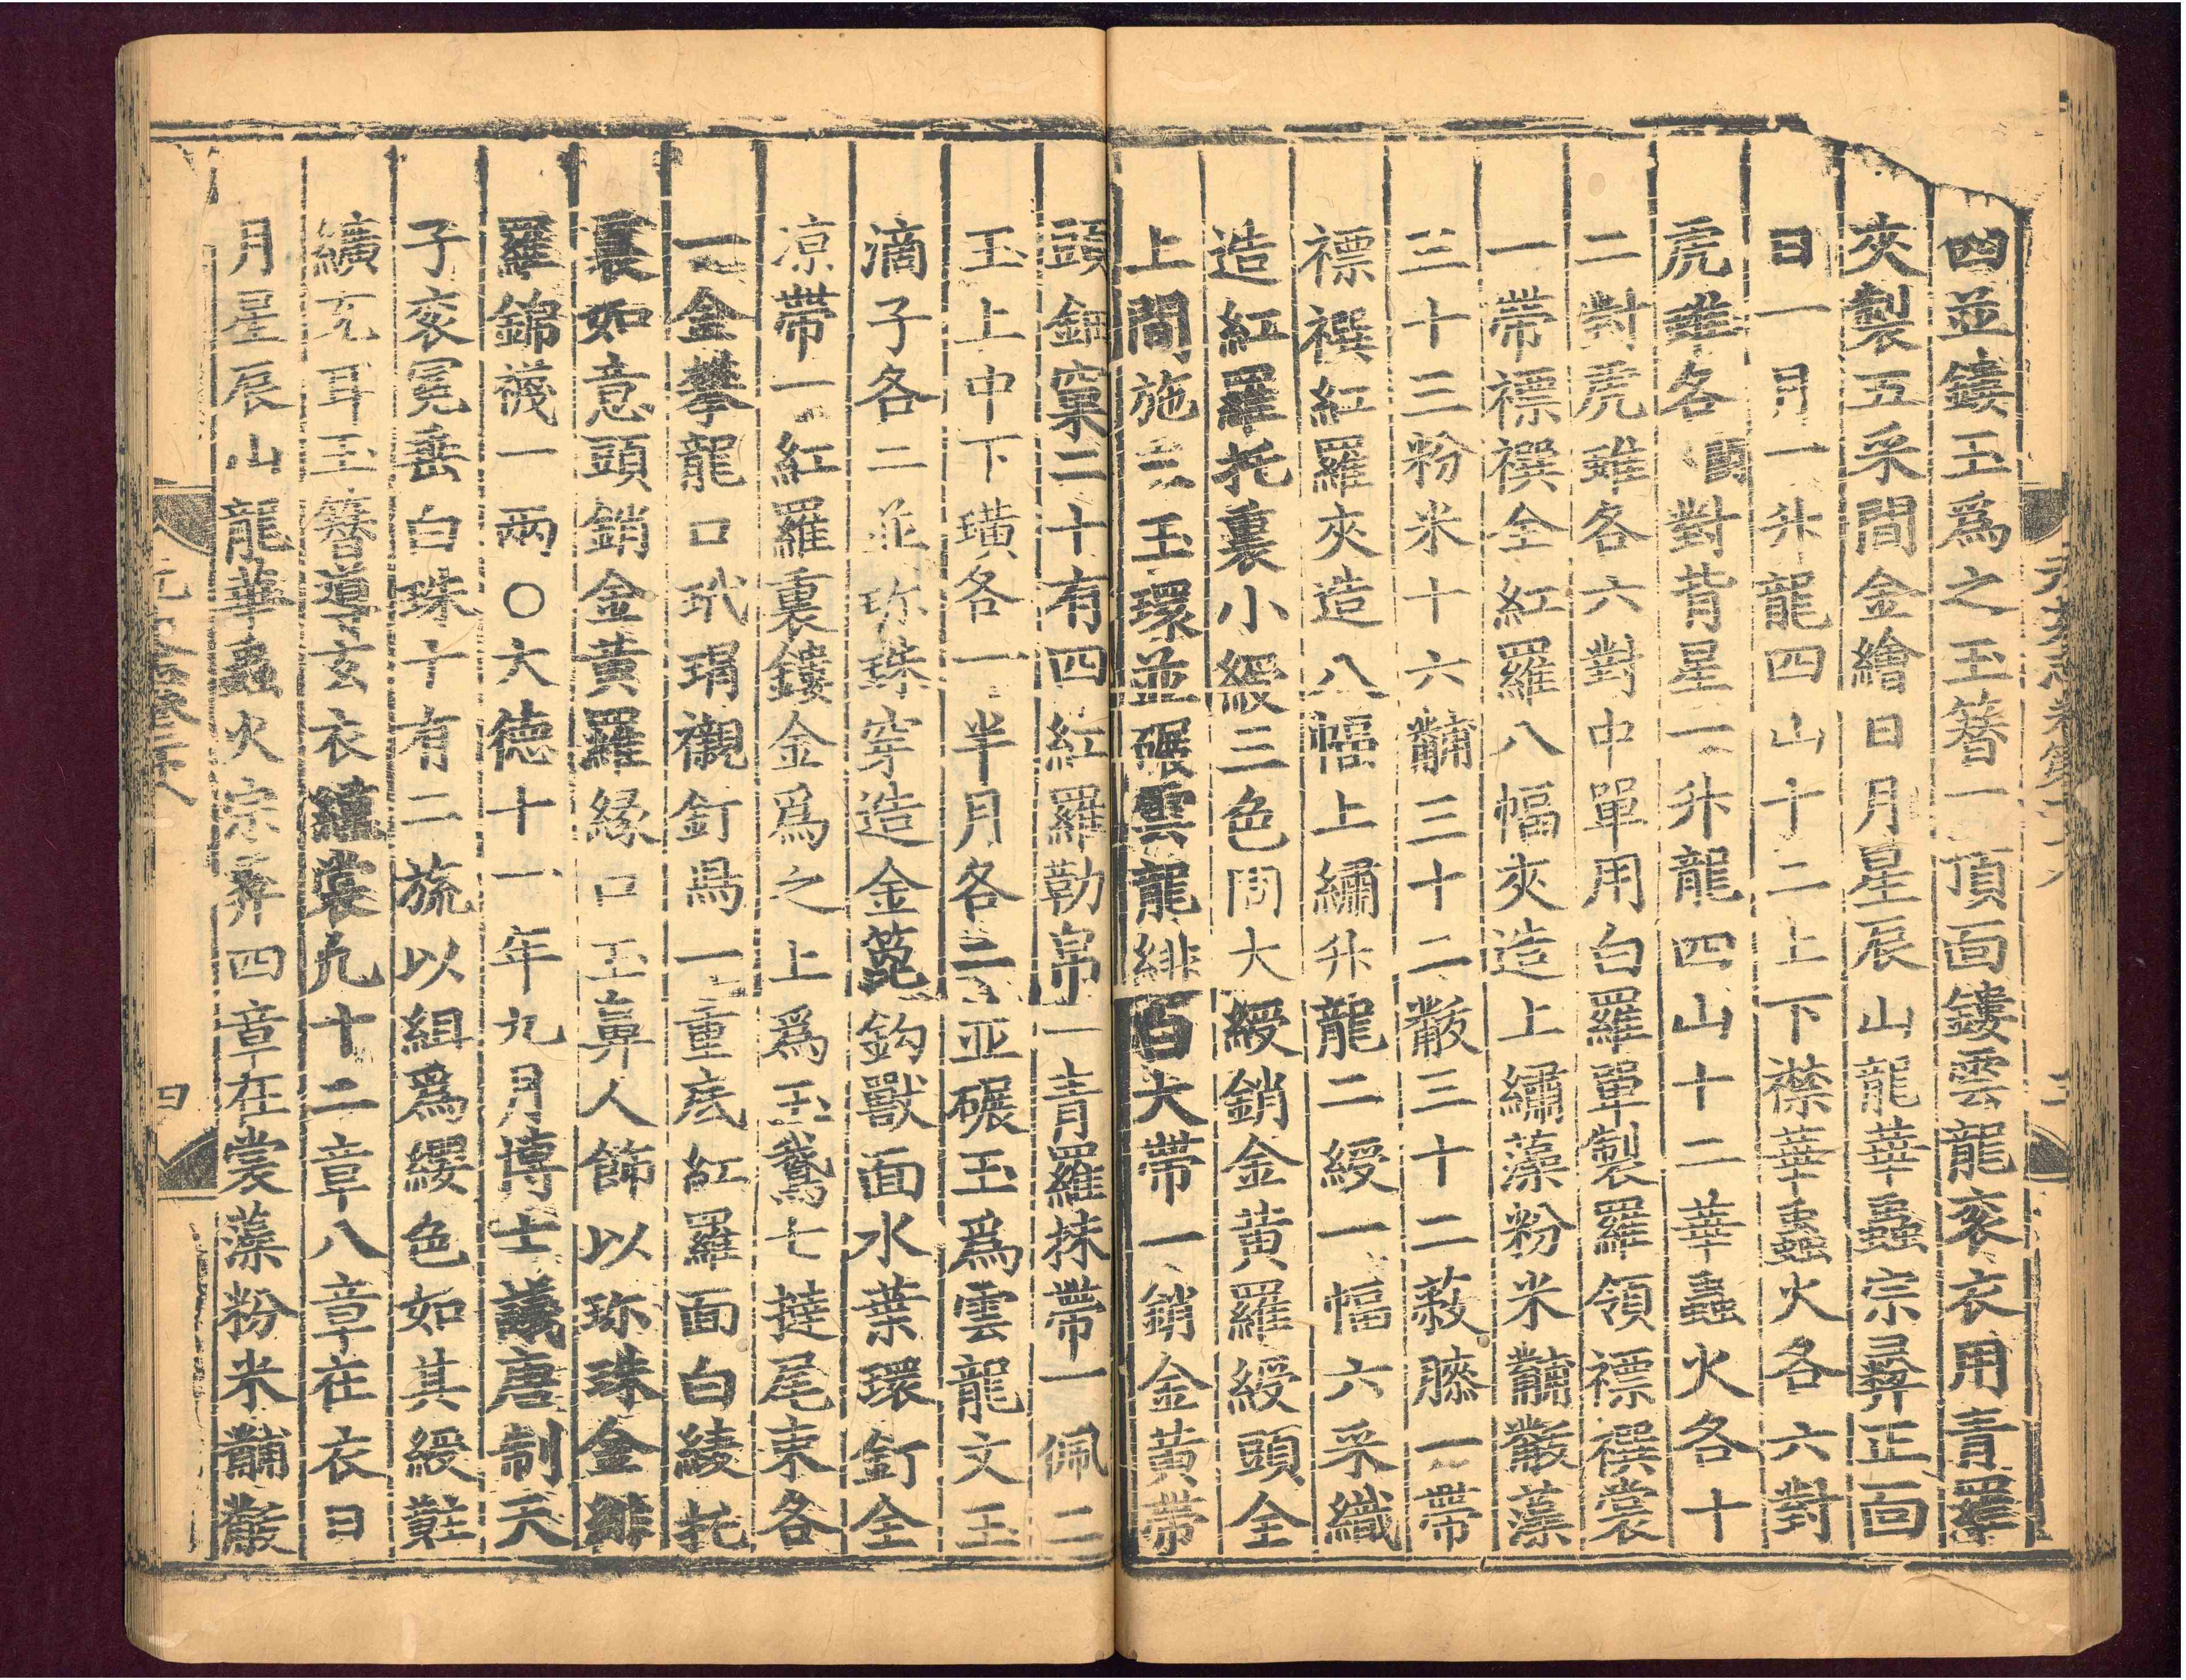 四並鏤玉爲之玉簪一頂面鏤雲龍衮衣用青羅
夾製五采間金繪日月星辰山龍華蟲宗彝正面
日一月一升龍四山十二上下襟華蟲火各六對
虎蜼各對背星一升龍四山十二華蟲火各十
二對虎蜼各六對中單用白羅單製羅領褾襈裳
一帶褾襈全紅羅八幅夾造上繡藻粉米黼黻藻
三十三粉米十六黼三十二黻三十二蔽膝一帶
褾襈紅羅夾造八幅上繡升龍二綬一幅六采織
造紅羅托裏小綬三色同大綬銷金黃羅綬頭全
上間施三玉環並碾雲龍緋白大帶一銷金黃帶
頭鈿窠二十有四紅羅勒帛一青羅抹帶一佩二
玉上中下璜各一半月各二並碾玉爲雲龍文玉
滴子各二並珎珠穿造金篦鈎獸面水葉環釘全
凉帶一紅羅裏鏤金爲之上爲玉鵞七撻尾束各
一金攀龍口玳瑁襯釘舄一重底紅羅面白綾托
裏如意頭銷金黃羅緣口玉鼻人飾以珎珠金緋
羅錦襪一兩○大德十一年九月博士議唐制天
子衮冕垂白珠十有二旒以組爲纓色如其綬黈
纊充耳玉簪導玄衣纁裳凡十二章八章在衣日
月星辰山龍華蟲火宗彝四章在裳藻粉米黼黻
四